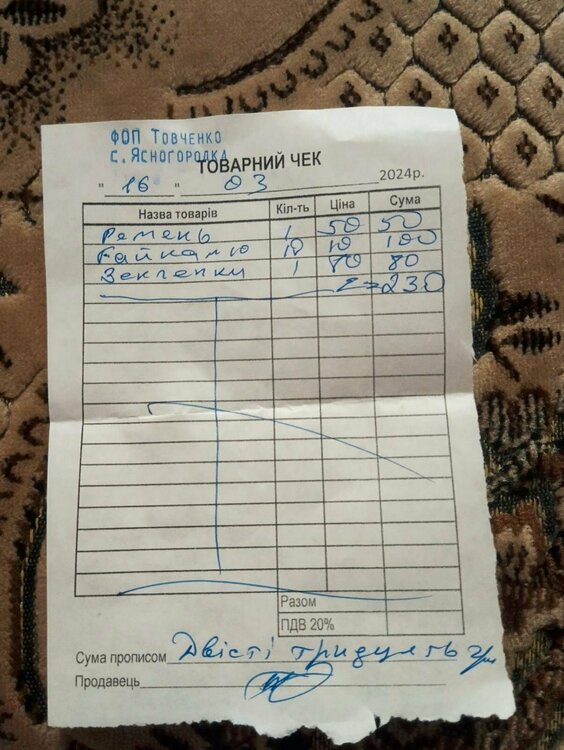 ФОП Товченко
с. Ясногородка
ТОВАРНИЙ ЧЕК
" 16 " 03 2024р.
Назва товарів Кіл-ть Ціна Сума
Ремень 1 50 50
10 10 100
1 80 80
230
Разом
ПДВ 20%
Сума прописом Двісті тридцять грн
Продавець